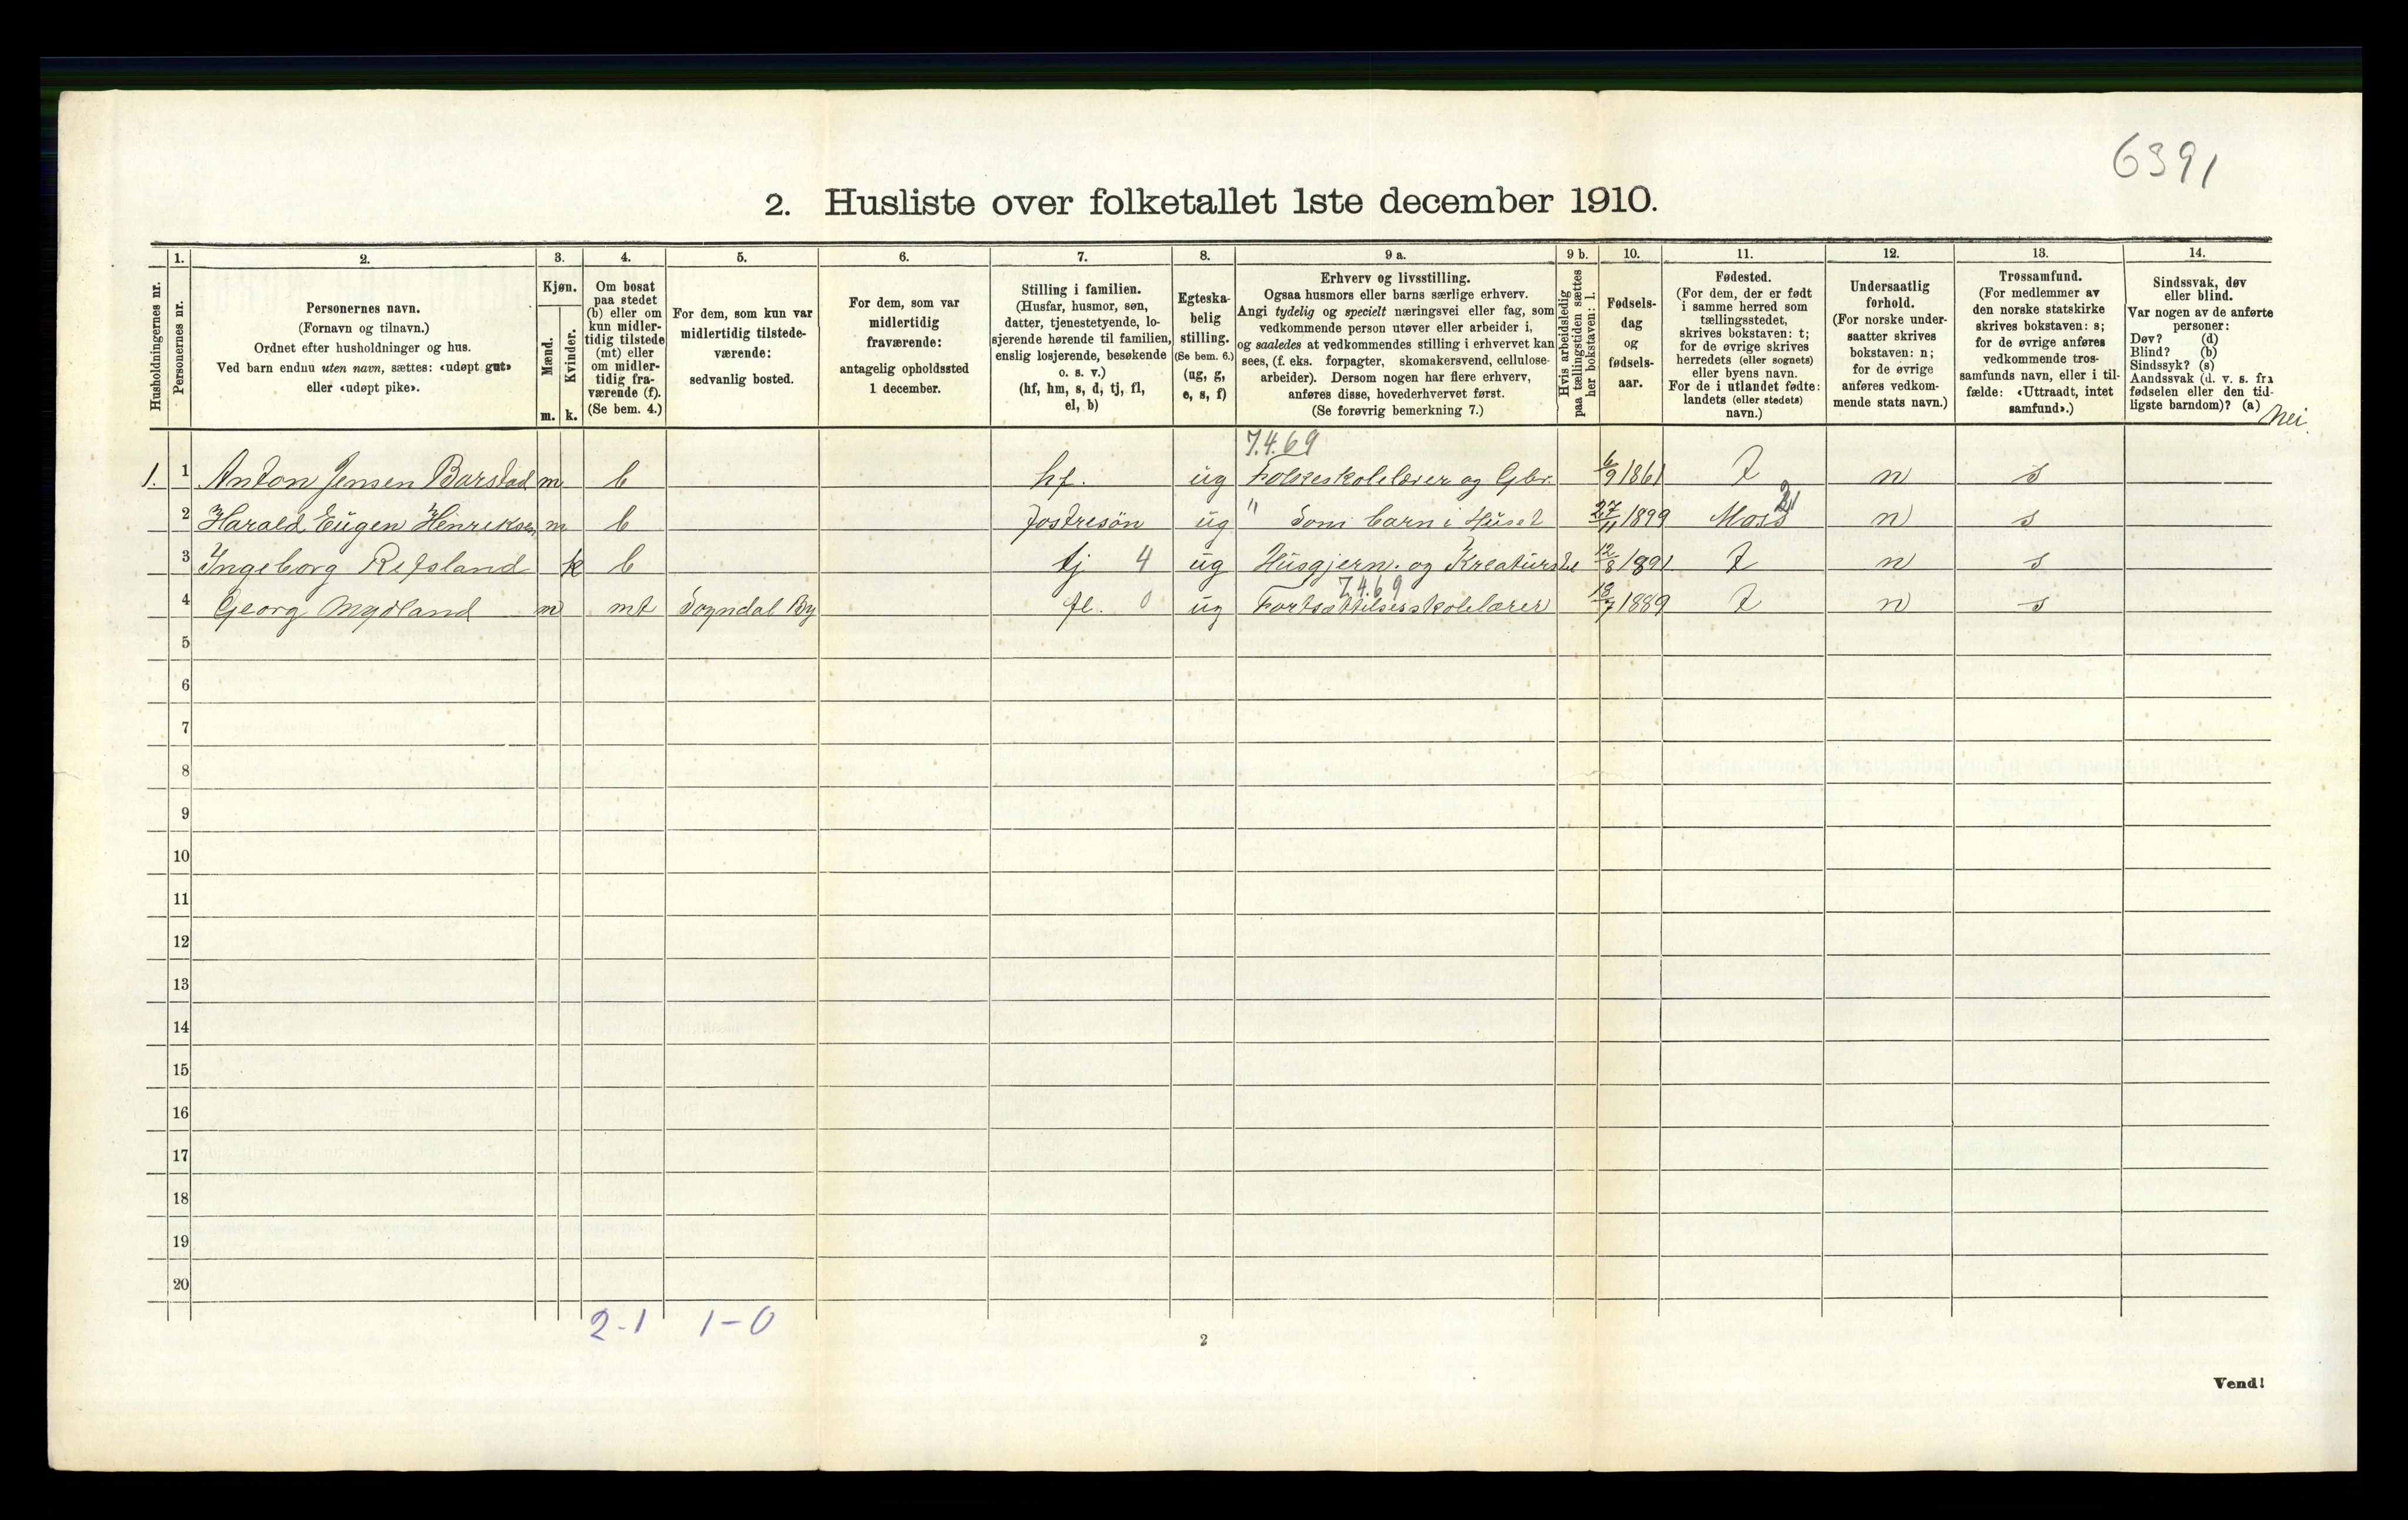 6391
2. Husliste over folketallet 1ste december 1910.
Husholdningernes nr.
1.
Personernes nr.
2.
Personernes navn.
(Fornavn og tilnavn.)
Ordnet efter husholdninger og hus.
Ved barn endnu uten navn, sættes: «udøpt gut»
eller «udøpt pike».
3.
Kjøn.
Mænd.
m.
Kvinder.
k.
4.
Om bosat
paa stedet
(b) eller om
kun midler-
tidig tilstede
(mt) eller
om midler-
tidig fra-
værende (f).
(Se bem. 4.)
5.
For dem, som kun var
midlertidig tilstede-
værende:
sedvanlig bosted.
6.
For dem, som var
midlertidig
fraværende:
antagelig opholdssted
1 december.
7.
Stilling i familien.
(Husfar, husmor, søn,
datter, tjenestetyende, lo-
sjerende hørende til familien,
enslig losjerende, besøkende
o. s. v.)
(hf, hm, s, d, tj, fl,
el, b)
8.
Egteska-
belig
stilling.
(Se bem. 6.)
(ug, g,
e, s, f)
9 a.
Erhverv og livsstilling.
Ogsaa husmors eller barns særlige erhverv.
Angi tydelig og specielt næringsvei eller fag, som
vedkommende person utøver eller arbeider i,
og saaledes at vedkommendes stilling i erhvervet kan
sees, (f. eks. forpagter, skomakersvend, cellulose-
arbeider). Dersom nogen har flere erhverv,
anføres disse, hovederhvervet først.
(Se forøvrig bemerkning 7.)
9 b.
Hvis arbeidsledig
paa tællingstiden sættes
her bokstaven: l.
10.
Fødsels-
dag
og
fødsels-
aar.
11.
Fødested.
(For dem, der er født
i samme herred som
tællingsstedet,
skrives bokstaven: t;
for de øvrige skrives
herredets (eller sognets)
eller byens navn.
For de i utlandet fødte:
landets (eller stedets)
navn.)
12.
Undersaatlig
forhold.
(For norske under-
saatter skrives
bokstaven: n;
for de øvrige
anføres vedkom-
mende stats navn.)
13.
Trossamfund.
(For medlemmer av
den norske statskirke
skrives bokstaven: s;
for de øvrige anføres
vedkommende tros-
samfunds navn, eller i til-
fælde: «Uttraadt, intet
samfund».)
14.
Sindssvak, døv
eller blind.
Var nogen av de anførte
personer:
Døv? (d)
Blind? (b)
Sindssyk? (s)
Aandssvak (d. v. s. fra
fødselen eller den tid-
ligste barndom)? (a)
Nei.
7.4.69
1. 1 Anton Jensen Barstad m b hf. ug Folkeskolelærer og Gbr. 6/9 1861 t n s
2 Harald Eugen Henriksen m b Fostresøn ug " Som barn i Huset 27/11 1899 Moss n s
3 Ingeborg Refsland k b tj 4 ug Husgjern. og Kreaturstel 12/8 1891 t n s
7.4.69
4 Georg Mydland m mt Sogndal By fl. 0 ug Fortsættelsesskolelærer 18/7 1889 t n s
5
6
7
8
9
10
11
12
13
14
15
16
17
18
19
20
2-1 1-0
2
Vend!